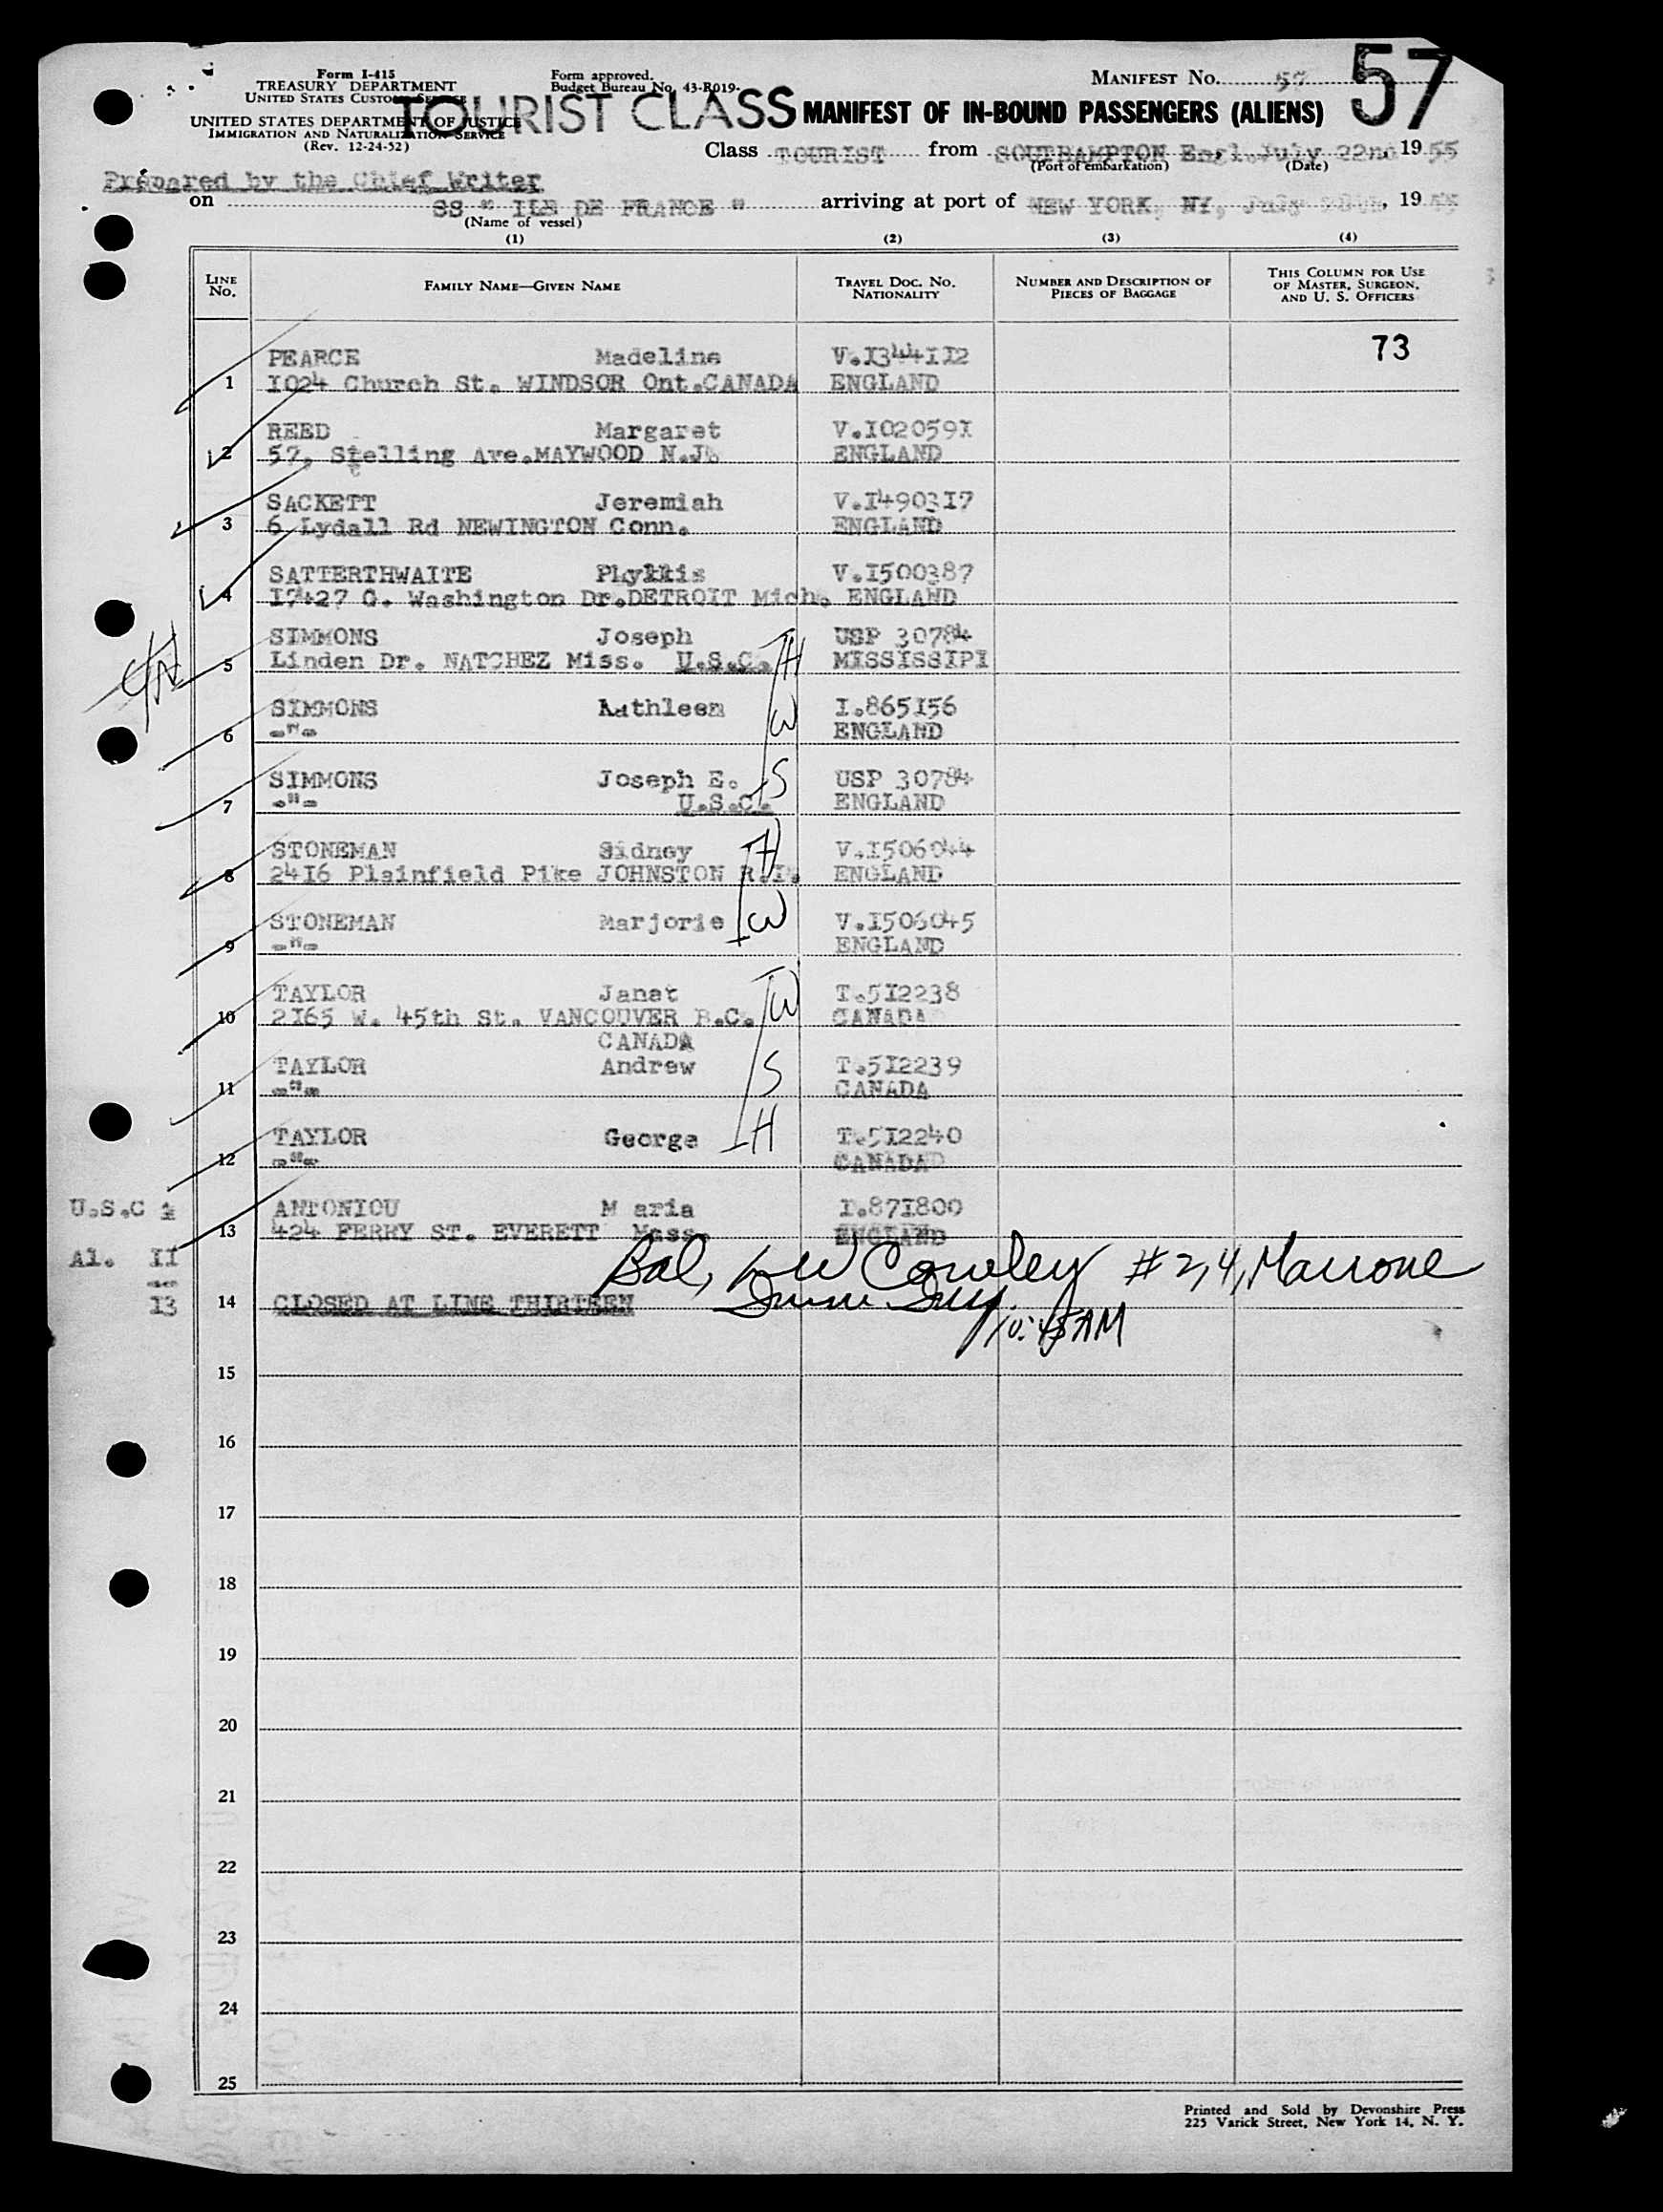 Form I-415
TREASURY DEPARTMENT
UNITED STATES CUSTOMS SERVICE
UNITED STATES DEPARTMENT OF JUSTICE
IMMIGRATION AND NATURALIZATION SERVICE
(Rev. 12-24-52)
Form approved.
Budget Bureau No. 43-R019.
MANIFEST No. 57
57
TOURIST CLASS MANIFEST OF IN-BOUND PASSENGERS (ALIENS)
Class TOURIST from SOUTHAMPTON Engl. July 22nd 1955
(Port of embarkation) (Date)
Prepared by the Chief Writer
on SS " ILE DE FRANCE " arriving at port of NEW YORK, NY, July , 1955
(Name of vessel)
(1) (2) (3) (4)
LINE No. FAMILY NAME—GIVEN NAME TRAVEL DOC. NO. NATIONALITY NUMBER AND DESCRIPTION OF PIECES OF BAGGAGE THIS COLUMN FOR USE OF MASTER, SURGEON, AND U. S. OFFICERS
73
PEARCE Madeline V.I344II2
1 I024 Church St. WINDSOR Ont.CANADA ENGLAND
REED Margaret V.I02059I
2 57, Stelling Ave.MAYWOOD N.J. ENGLAND
SACKETT Jeremiah V.I4903I7
3 6 Lydall Rd NEWINGTON Conn. ENGLAND
SATTERTHWAITE Phyllis V.I500387
4 I7427 G. Washington Dr.DETROIT Mich. ENGLAND
SIMMONS Joseph H USP 30784
5 Linden Dr. NATCHEZ Miss. U.S.C. MISSISSIPI
SIMMONS Kathleen W I.865I56
6 -"- ENGLAND
SIMMONS Joseph E. S USP 30784
7 -"- U.S.C. ENGLAND
STONEMAN Sidney H V.I506044
8 24I6 Plainfield Pike JOHNSTON R.I. ENGLAND
STONEMAN Marjorie W V.I506045
9 -"- ENGLAND
TAYLOR Janet W T.5I2238
10 2I65 W. 45th St. VANCOUVER B.C. CANADA
CANADA
TAYLOR Andrew S T.5I2239
11 -"- CANADA
TAYLOR George H T.5I2240
12 -"- CANADA
U.S.C 2 ANTONIOU M aria I.87I800
13 424 FERRY ST. EVERETT Mass. ENGLAND
Al. II
Bal, Cowley # 2, 4, Marrone
13
14 CLOSED AT LINE THIRTEEN
10:45 AM
15
16
17
18
19
20
21
22
23
24
25
Printed and Sold by Devonshire Press
225 Varick Street, New York 14, N. Y.